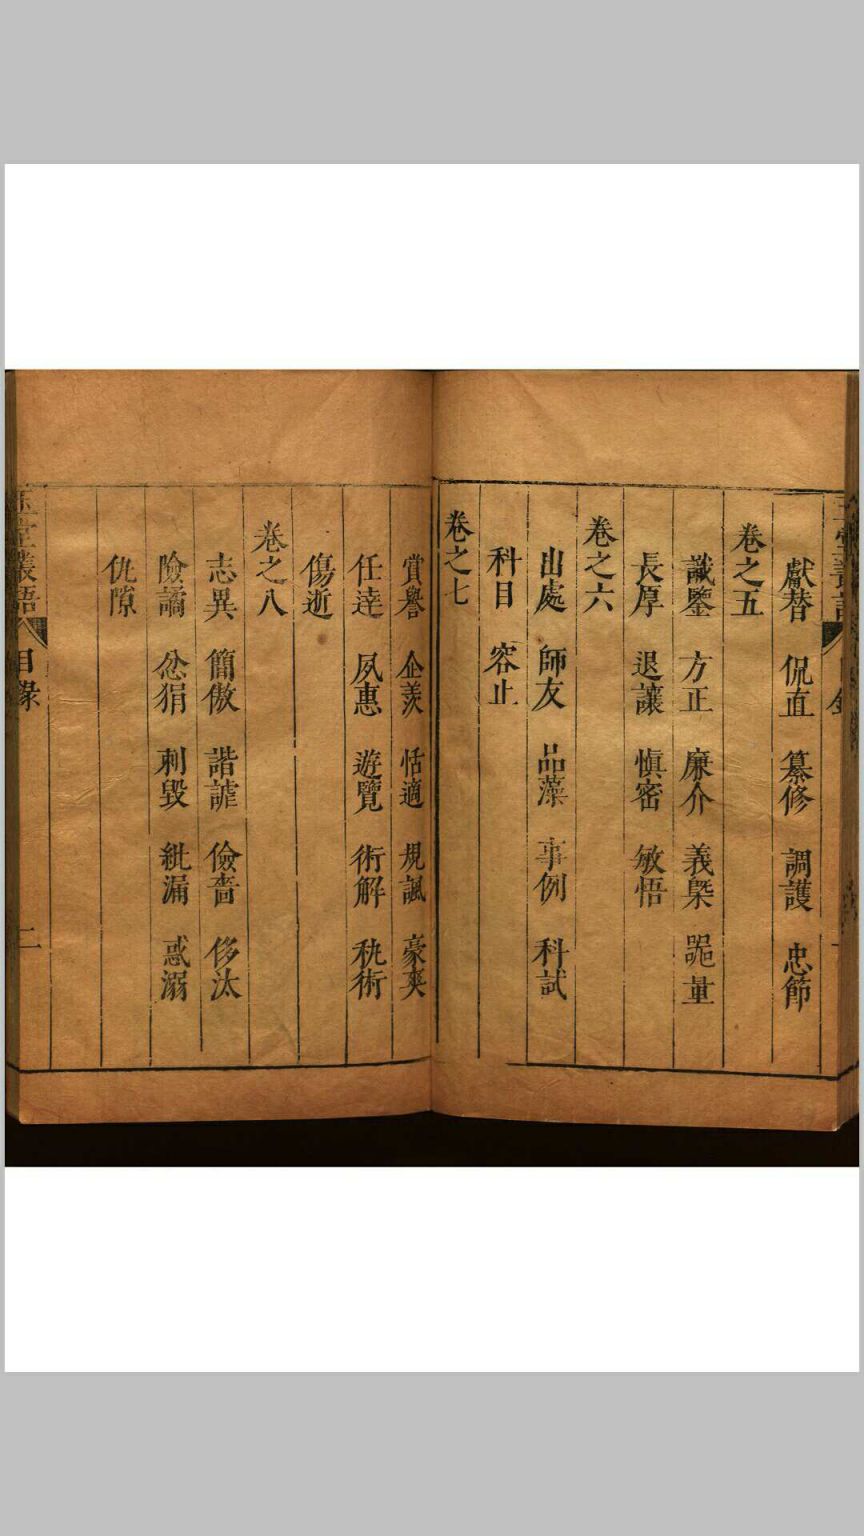 獻替 侃直 纂修 調護 忠節
卷之五
識鑒 方正 廉介 義槩 器量
長厚 退讓 慎密 敏悟
卷之六
出處 師友 品藻 事例 科試
科目 容止
卷之七
賞譽 企羨 恬適 規諷 豪爽
任達 夙惠 遊覽 術解 秇術
傷逝
卷之八
志異 簡傲 諧謔 儉嗇 侈汰
險譎 忿狷 刺毀 紕漏 惑溺
仇隙
玉堂叢語 目錄 二